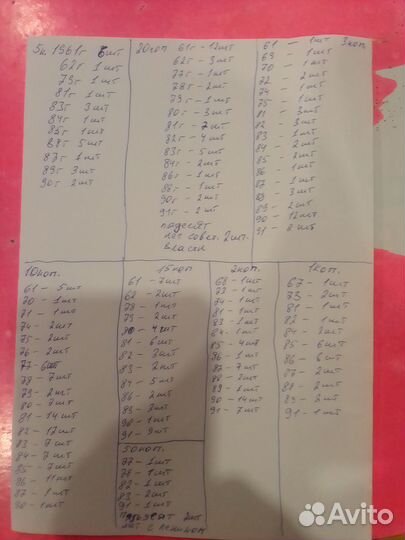 5к. 1961г 6шт
62г 1шт
79г 1шт
81г 1шт
83г 3шт
84г 1шт
85г 1шт
88г 5шт
87г 1шт
89г 3шт
90г 2шт
20коп 61г - 12шт
62г - 3шт
77г - 1шт
78г - 2шт
79г - 1шт
80г - 3шт
81г - 7шт
82г - 4шт
83г - 5шт
84г - 2шт
86г - 1шт
88г - 1шт
90г - 2шт
91г - 2шт
лет совет. 2шт.
власти
61 - 1шт 3коп.
69 - 1шт
70 - 1шт
72 - 2шт
74 - 1шт
75 - 1шт
81 - 3шт
82 - 3шт
83 - 1шт
84 - 2шт
85 - 2шт
86 - 1шт
87 - 1шт
88 - 3шт
89 - 2шт
90 - 12шт
91 - 8шт
10коп.
61 - 5шт
70 - 1шт
71 - 1шт
74 - 2шт
75 - 2шт
76 - 2шт
77 - 6шт
78 - 7шт
79 - 2шт
80 - 7шт
81 - 14шт
82 - 17шт
83 - 7шт
84 - 7шт
85 - 7шт
86 - 11шт
87 - 1шт
90 - 1шт
15коп
61 - 7шт
62 - 2шт
78 - 1шт
79 - 2шт
80 - 4шт
81 - 6шт
82 - 3шт
83 - 2шт
84 - 5шт
86 - 2шт
89 - 3шт
90 - 1шт
91 - 9шт
50коп.
77 - 1шт
78 - 1шт
82 - 1шт
83 - 2шт
91 - 1шт
2шт
лет с Лениным
2коп
68 - 1шт
73 - 1шт
74 - 1шт
81 - 1шт
83 - 1шт
84 - 1шт
85 - 4шт
86 - 1шт
87 - 7шт
88 - 2шт
89 - 1шт
90 - 14шт
91 - 7шт
1коп.
67 - 1шт
73 - 2шт
81 - 1шт
82 - 1шт
84 - 2шт
85 - 6шт
86 - 6шт
87 - 2шт
88 - 2шт
89 - 3шт
91 - 1шт
Avito